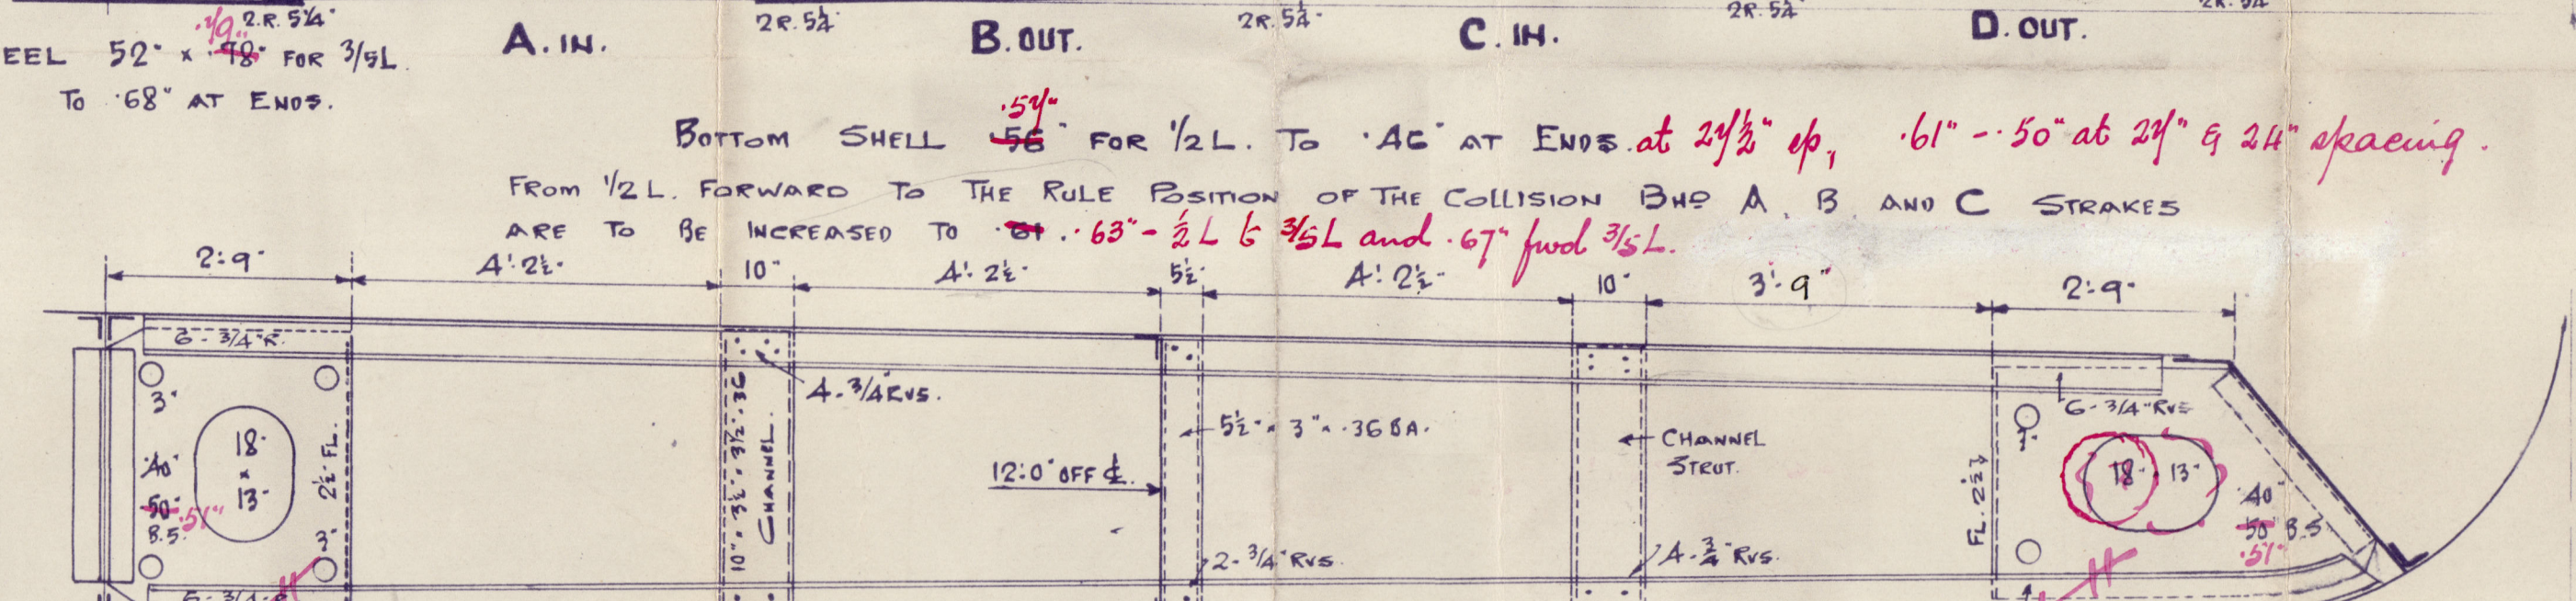 2.R. 5¼" 2R. 5¼" 2R. 5¼" 2R. 5¼" 2R. 5¼
.79"
EEL 52" x .78" FOR 3/5L.
TO .68" AT ENDS.
A. IN.
B. OUT.
C. IN.
D. OUT.
.57"
BOTTOM SHELL .56" FOR 1/2 L. TO .46" AT ENDS. at 27½" sp, .61" - .50" at 27" & 24" spacing.
FROM 1/2 L. FORWARD TO THE RULE POSITION OF THE COLLISION BHD A, B AND C STRAKES
ARE TO BE INCREASED TO .61 .63" - ½ L to 3/5L and .67" fwd 3/5L.
2'.9" 4'.2½" 10" 4'.2½" 5½" 4'.2½" 10" 3'.9" 2'.9"
6 - 3/4" R.
4 - 3/4 RVS.
6 - 3/4" RVS
3"
18"
x
13"
.40"
.50"
.51"
B.S.
2½" FL.
3"
10" x 3½" x 3½" x .36
CHANNEL.
5½" x 3" x .36 BA.
12'.0" OFF ℄.
2 - 3/4" RVS.
CHANNEL
STRUT.
4 - ¾" RVS.
FL. 2½"
18" x 13"
.40"
.50" B.S
.51"
6 - 3/4" R